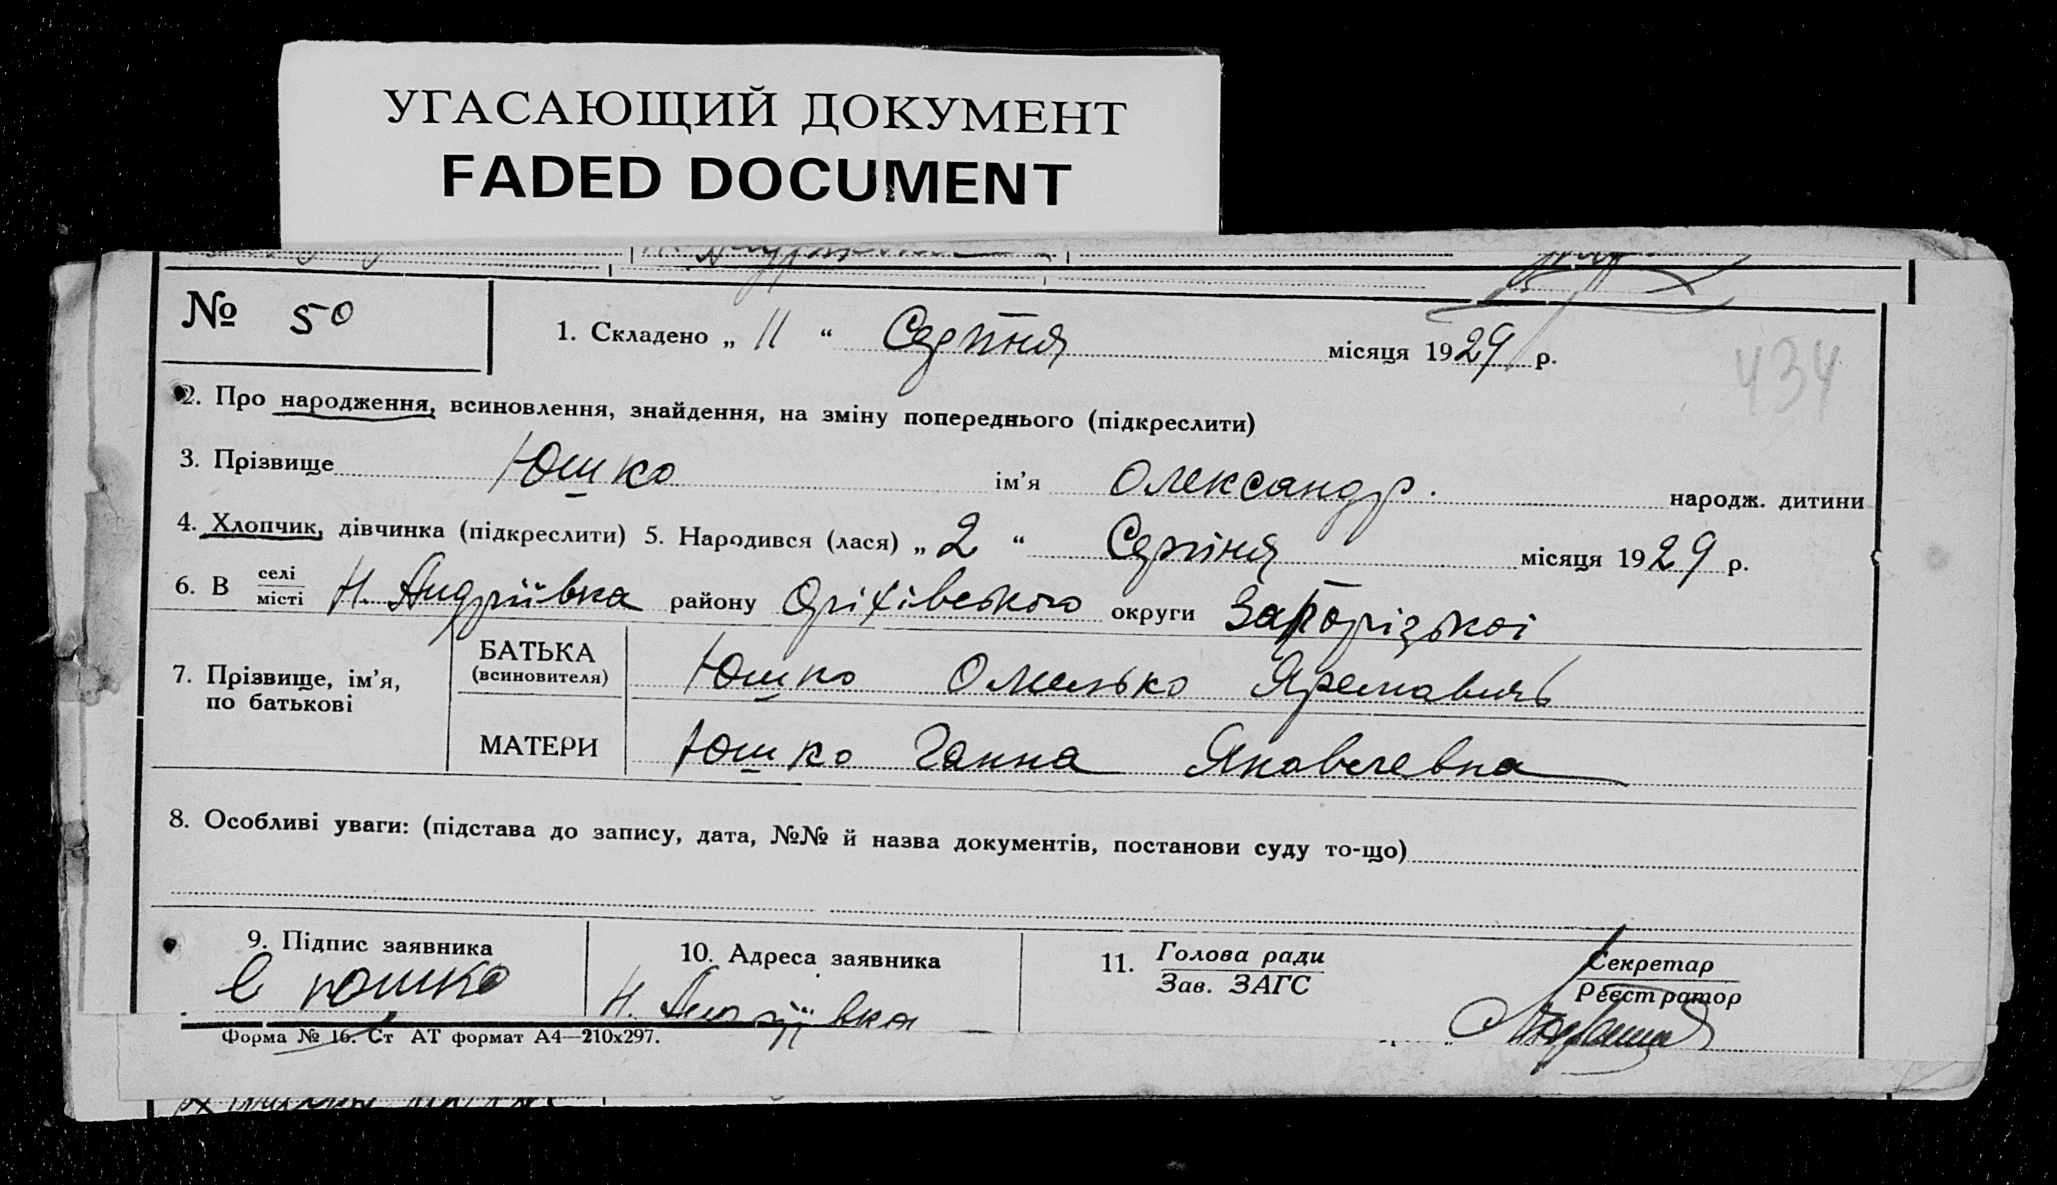 УГАСАЮЩИЙ ДОКУМЕНТ
FADED DOCUMENT
№ 50
1. Складено „ 11 “ Серпня місяця 1929 р.
434
2. Про народження, всиновлення, знайдення, на зміну попереднього (підкреслити)
3. Прізвище Юшко ім’я Олександр. народж. дитини
4. Хлопчик, дівчинка (підкреслити) 5. Народився (лася) „ 2 “ Серпня місяця 1929 р.
6. В селі місті Н. Андріївка району Оріхівського округи Запорізької
7. Прізвище, ім’я, по батькові
БАТЬКА (всиновителя) Юшко Омелько Яремович
МАТЕРИ Юшко Ганна Яковлевна
8. Особливі уваги: (підстава до запису, дата, №№ й назва документів, постанови суду то-що)
9. Підпис заявника
Є Юшко
10. Адреса заявника
Н. Андріївка
11. Голова ради
Зав. ЗАГС
Секретар
Реєстратор
Форма № 16. Ст АТ формат А4—210х297.